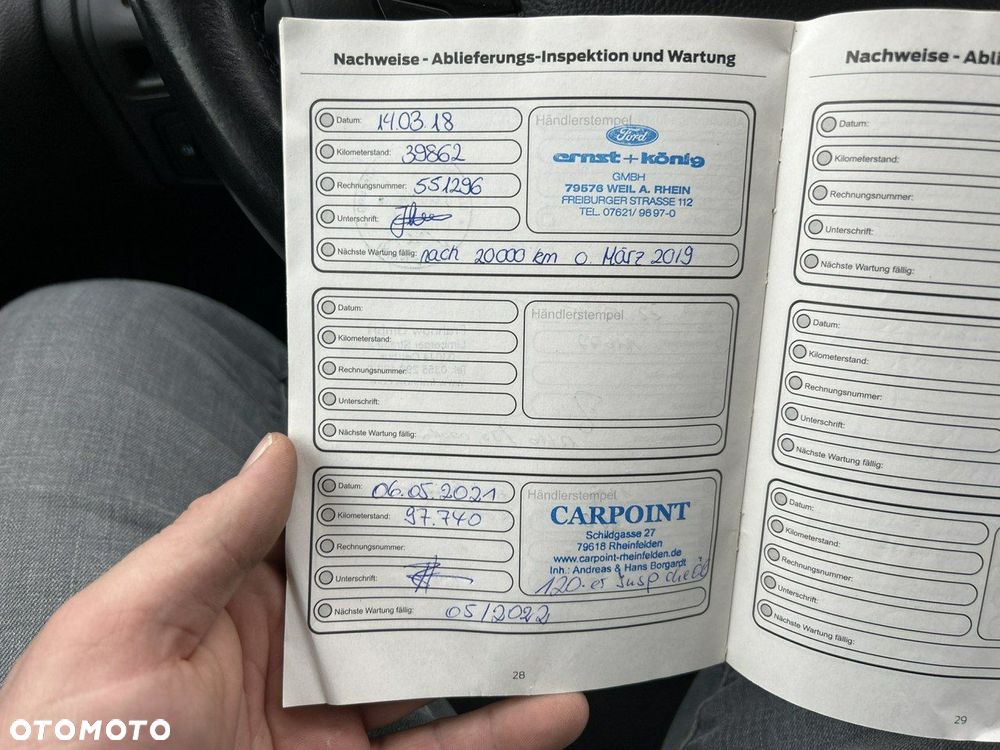 Nachweise - Ablieferungs-Inspektion und Wartung
Datum: 14.03.18
Kilometerstand: 39862
Rechnungsnummer: 551296
Unterschrift:
Nächste Wartung fällig: nach 20000 km o. März 2019
Händlerstempel
Ford
ernst+könig
GMBH
79576 WEIL A. RHEIN
FREIBURGER STRASSE 112
TEL. 07621/ 96 97-0
Datum:
Kilometerstand:
Rechnungsnummer:
Unterschrift:
Nächste Wartung fällig:
Händlerstempel
Datum: 06.05.2021
Kilometerstand: 97.740
Rechnungsnummer:
Unterschrift:
Nächste Wartung fällig: 05/2022
Händlerstempel
CARPOINT
Schildgasse 27
79618 Rheinfelden
www.carpoint-rheinfelden.de
Inh.: Andreas & Hans Borgardt
120-er Insp
28
Nachweise - Abli
Datum:
Kilometerstand:
Rechnungsnummer:
Unterschrift:
Nächste Wartung fällig:
Datum:
Kilometerstand:
Rechnungsnummer:
Unterschrift:
Nächste Wartung fällig:
Datum:
Kilometerstand:
Rechnungsnummer:
Unterschrift:
Nächste Wartung fällig:
29
OTOMOTO